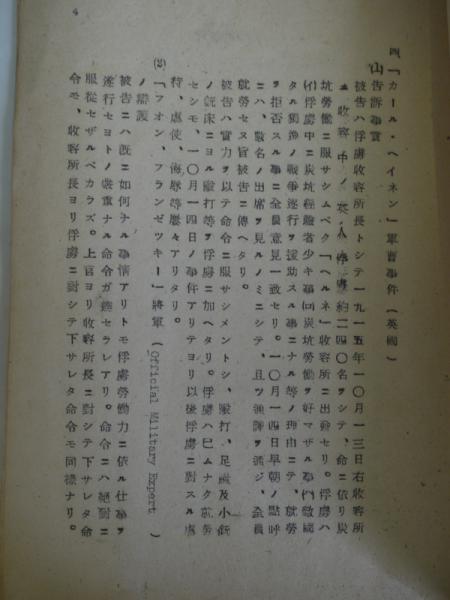 4
四、「カール・ヘイネン」軍曹事件(英國)
(1)告訴事實
被告ハ俘虜收容所長トシテ一九一五年一〇月一三日右收容所
ニ收容中ノ英人俘虜約二四〇名ヲシテ、命ニ依リ炭
坑勞働ニ服サシムベク「ヘルネ」收容所ニ出發セリ。俘虜ハ
(イ)俘虜中ニ炭坑經驗者少キ事(ロ)炭坑勞働ヲ好マザル事(ハ)敵國
タル獨逸ノ戰爭遂行ヲ援助スル事ニナル等ノ理由ニテ、就勞
ヲ拒否スル事ニ全員意見一致セリ。一〇月一四日早朝ノ點呼
ニハ、數名ノ出席ヲ見ルノミニシテ、且ツ通譯ヲ通ジ、全員
就勞セヌ旨被告ニ傳ヘタリ。
被告ハ實力ヲ以テ命令ニ服サシメントシ、毆打、足蹴及小銃
ノ銃床ニヨル毆打等ヲ俘虜ニ加ヘタリ。俘虜ハ已ムナク就勞
セシモ、一〇月一四日ノ事件アリテヨリ以後俘虜ニ對スル虐
待、虐使、侮辱等屢々アリタリ。
(2)「フオン、フランゼツキー」將軍(Official Military Expert)
ノ辯護
被告ニハ既ニ如何ナル事情アリトモ俘虜勞働力ニ依ル仕事ヲ
遂行セヨトノ嚴重ナル命令ガ發セラレアリ。命令ニハ絕對ニ
服從セザルベカラズ。上官ヨリ收容所長ニ對シテ下サレタ命
令モ、收容所長ヨリ俘虜ニ對シテ下サレタ命令モ同樣ナリ。